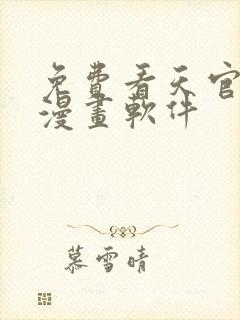 免費看天官
漫畫軟件
慕雪晴